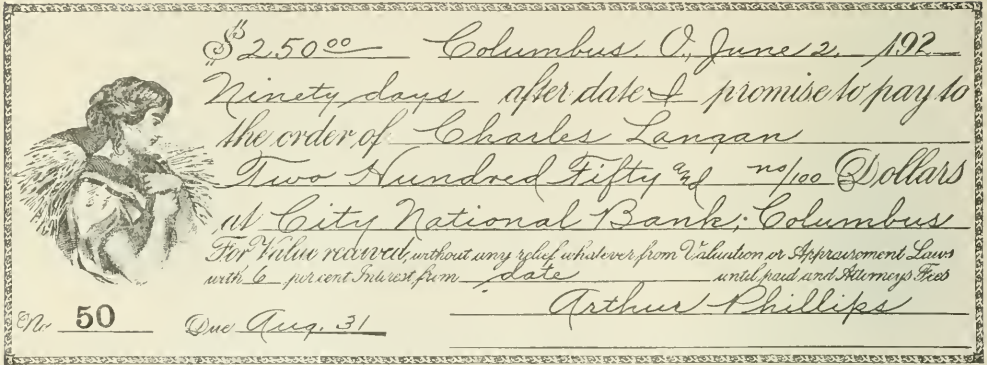 $250.00 Columbus, O., June 2, 192
Ninety days after date I promise to pay to
the order of Charles Langan
Two Hundred Fifty and no/100 Dollars
at City National Bank, Columbus
For Value received, without any relief whatever from Valuation or Appraisement Laws
with 6 per cent Interest from date until paid and Attorneys Fees
Arthur Phillips
No. 50 Due Aug. 31